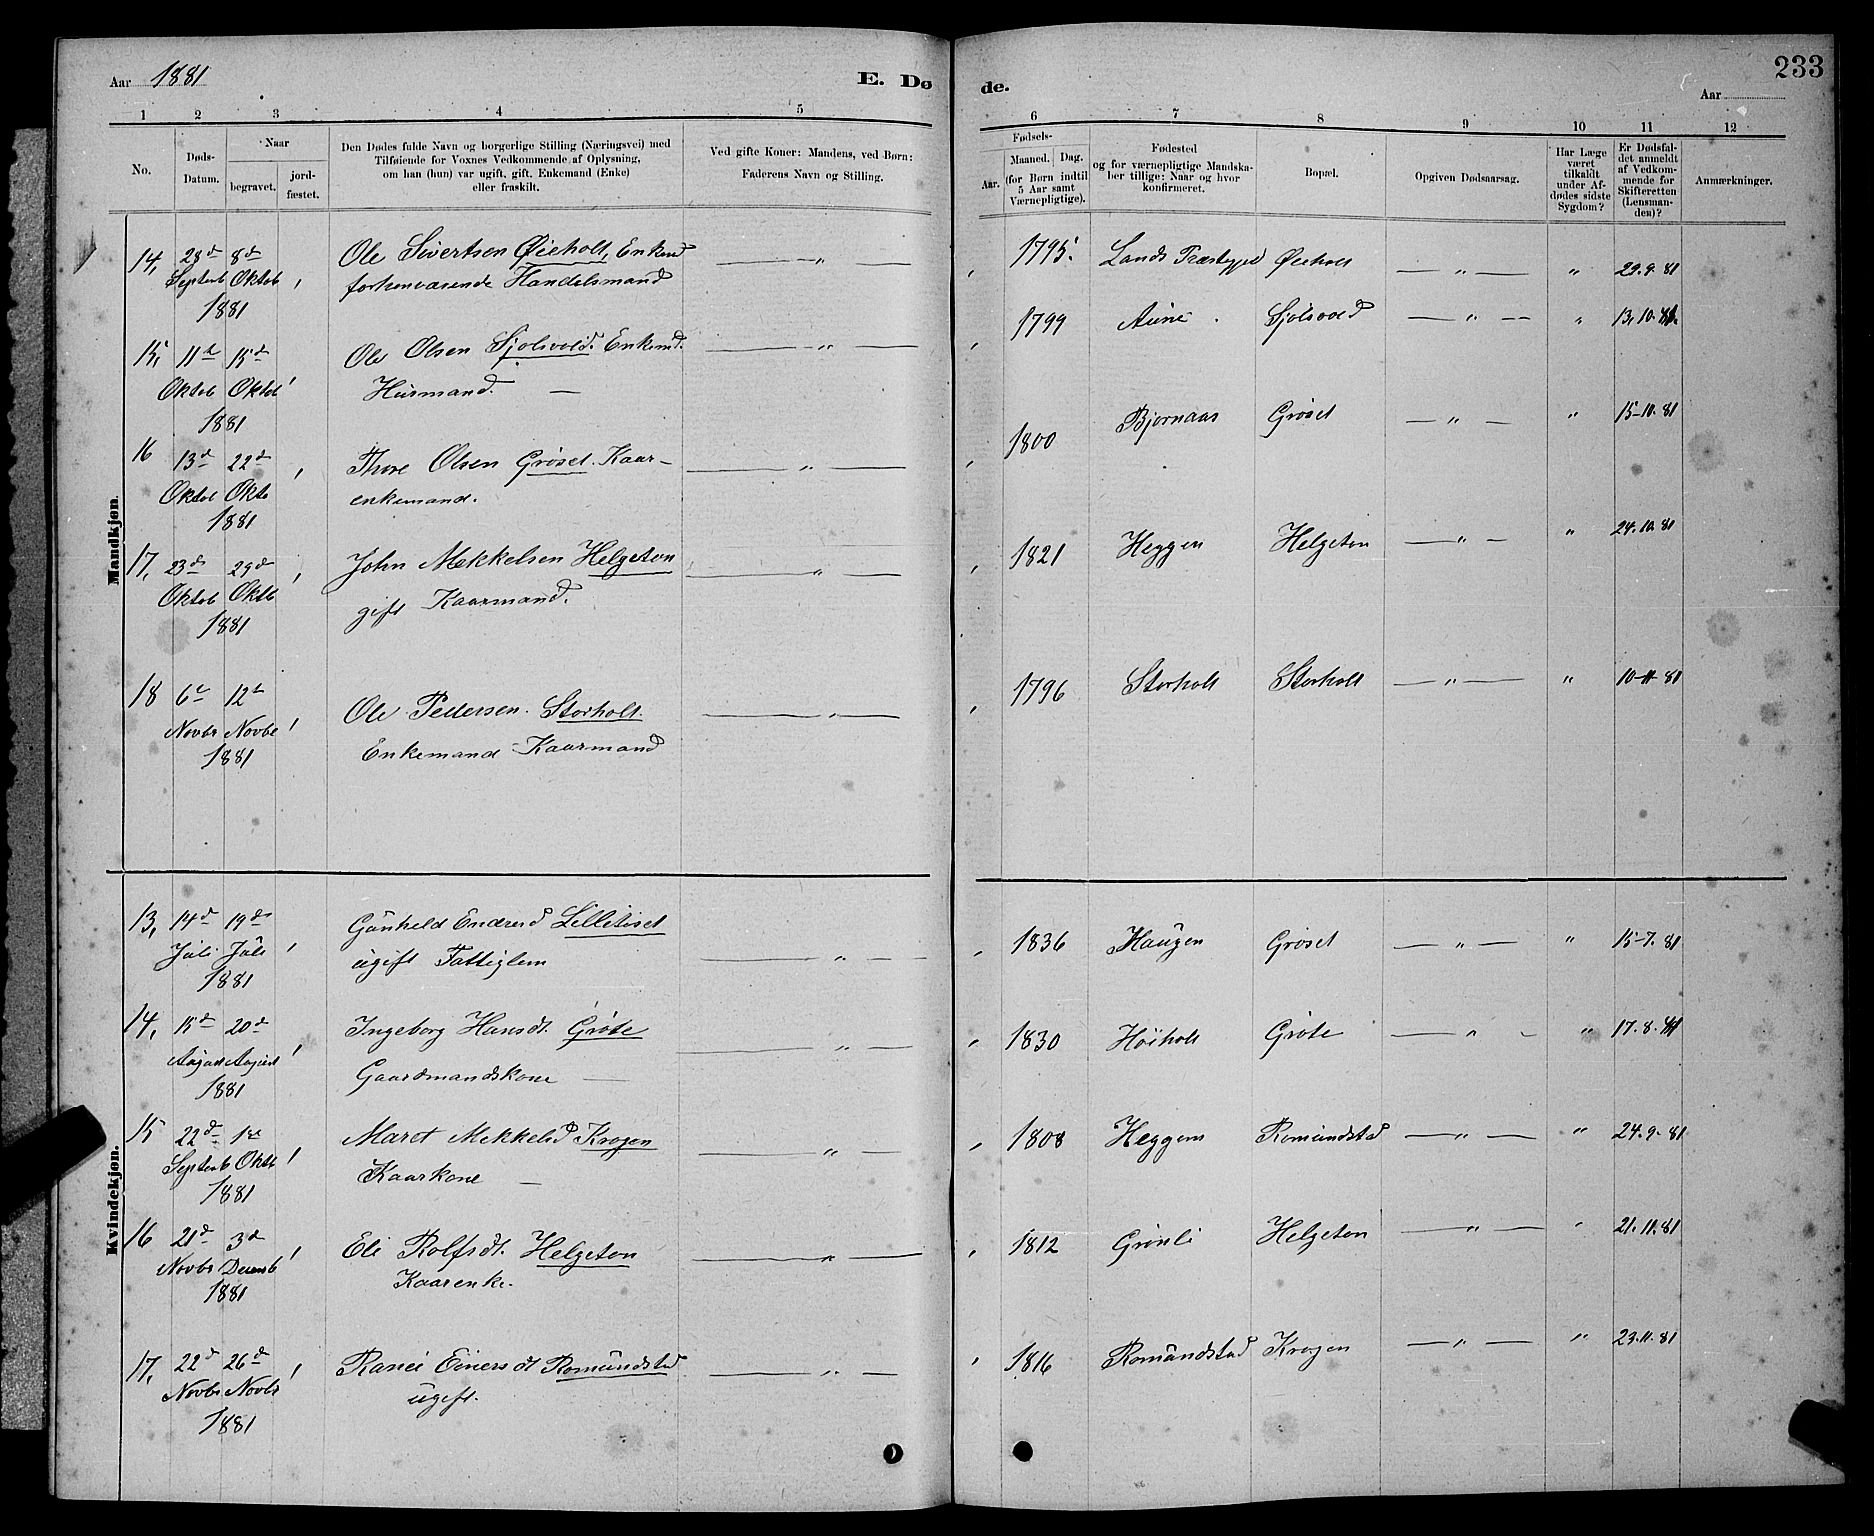 Aar 1881
E. Dø
de.
233
Aar
1 2 3 4 5 6 7 8 9 10 11 12
No.
Døds-
Datum.
Naar
begravet.
jord-
fæstet.
Den Dødes fulde Navn og borgerlige Stilling (Næringsvei) med
Tilføiende for Voxnes Vedkommende af Oplysning,
om han (hun) var ugift, gift, Enkemand (Enke)
eller fraskilt.
Ved gifte Koner: Mandens, ved Børn:
Faderens Navn og Stilling.
Fødsels-
Aar.
Maaned. Dag.
(for Børn indtil
5 Aar samt
Værnepligtige).
Fødested
og for værnepligtige Mandska-
ber tillige: Naar og hvor
konfirmeret.
Bopæl.
Opgiven Dødsaarsag.
Har Læge
været
tilkaldt
under Af-
dødes sidste
Sygdom?
Er Dødsfal-
det anmeldt
af Vedkom-
mende for
Skifteretten
(Lensman-
den)?
Anmærkninger.
Mandkjøn.
14, 28d 8d Ole Sivertsen Øieholt, Enkemd — " — 1795. Lands Øieholt — " — " 29.9.81
Septeb Oktob forhenværende Handelsmand
1881
15, 11te 15d Ole Olsen Sjolsvold. Enkemd. — " — 1799 Aune Sjolsvold — " — " 13.10.81.
Oktob Oktob Husmand. —
1881
16 13d 22d Thore Olsen Grøset. Kaar- — " — 1800 Bjørnaas Grøset — " — " 15-10.81
Oktob Oktb enkemand.
1881
17, 23d 29d John Mekkelsen Helgeton — " — 1821 Heggen Helgeton — " — " 24.10.81
Oktob Oktb gift Kaarmand.
1881
18 6te 12te Ole Pedersen. Storholt. — " — 1796 Storholt Storholt — " — " 10-11-81
Novbr Novbr Enkemand Kaarmand
1881
Kvindekjøn.
13, 14d 19de Gunheld Enderesd Lilletiset — " — 1836 Haugen Grøset — " — " 15-7.81
Juli Juli ugift Fattiglem
1881
14, 15d 20d Ingeborg Hansdt. Grøte — " — 1830 Høiholt Grøte — " — " 17.8.81
August August Gaardmandskone —
1881
15 22d 1ste Maret Mekkelsd Krogen — " — 1808 Heggem Romundstad — " — " 24.9.81
Septeb Oktb Kaarkone —
1881
16 21d 3d Eli Rolfsdt. Helgeton — " — 1812 Grønli Helgeton — " — " 21.11.81
Novbr Decemb Kaarenke.
1881
17, 22d 26d Ranei Einersdt Romundstad — " — 1816 Romundstad Krogen — " — " 23.11.81
Novbr Novbr ugift.
1881